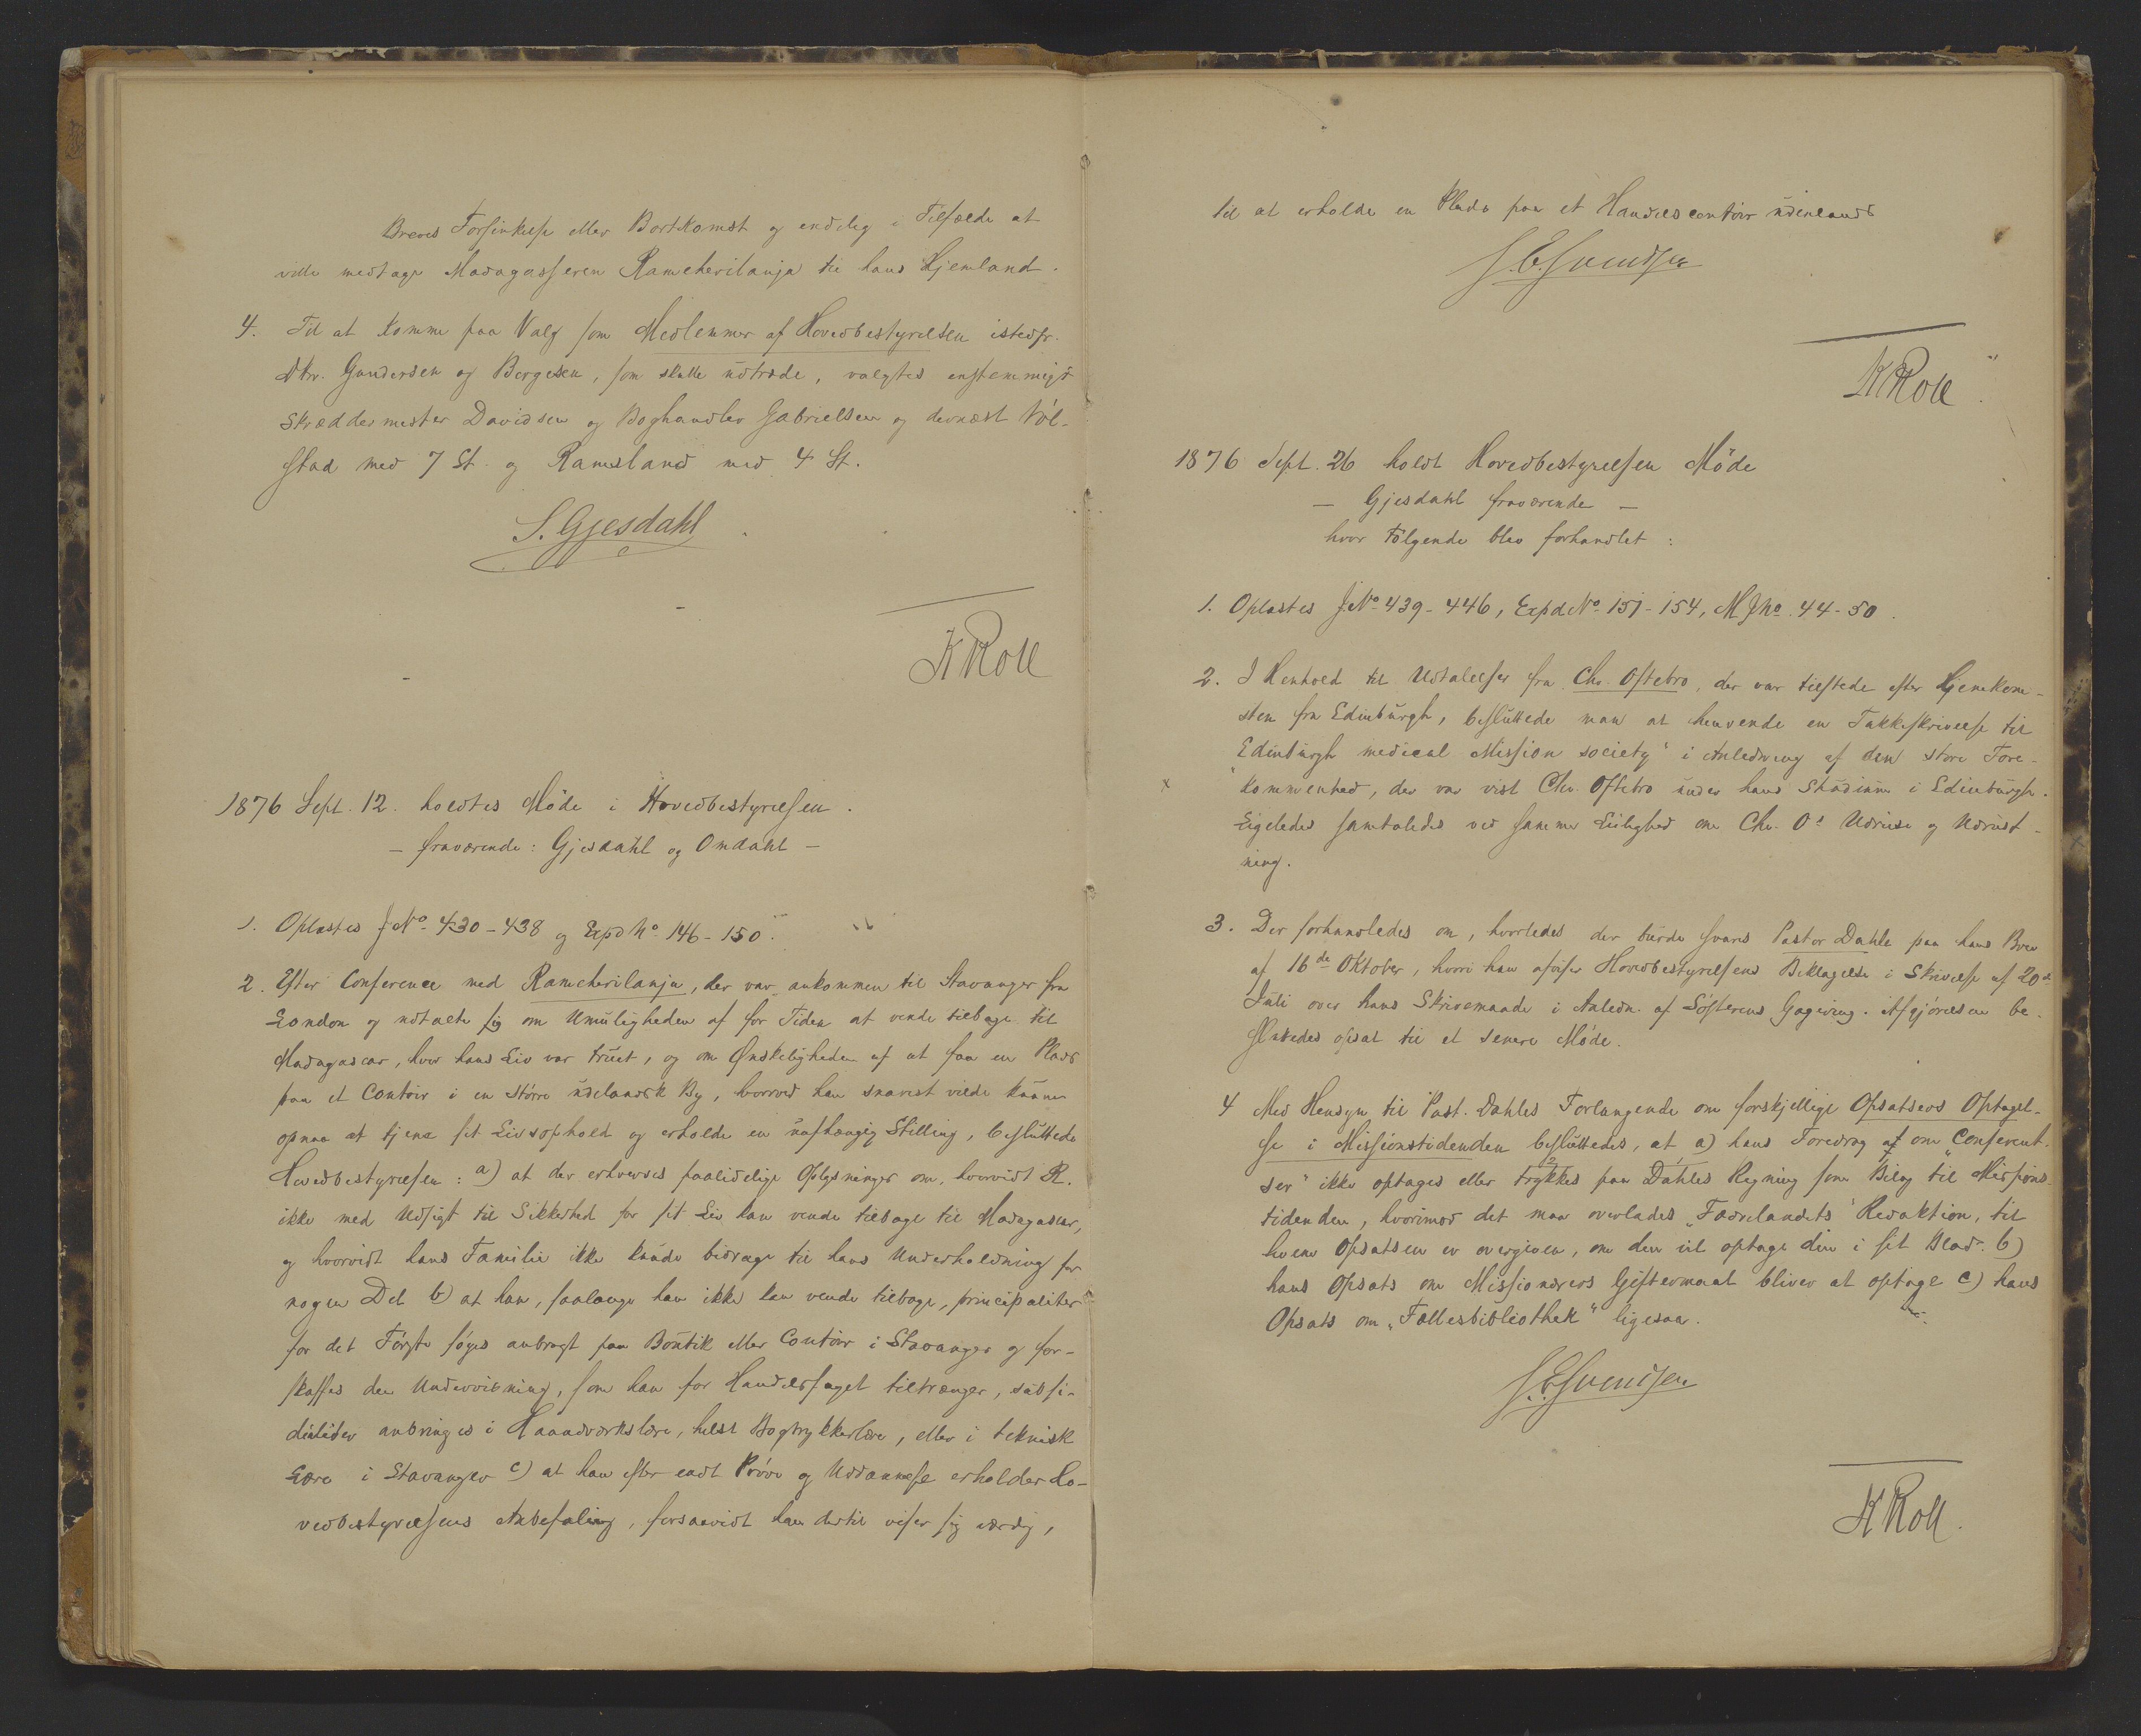 Breves Forsinkelse eller Bortkomst og endelig i Tilfælde at
ville medtage Madagasseren Rameherilanja til hans Hjemland.
4. Til at komme paa Valg som Medlemmer af Hovedbestyrelsen istedfr.
Dhrr. Gundersen og Borgesen, som skulle udtræde, valgtes enstemmigt
Skræddermester Davidsen og Boghandler Gabrielsen og dernæst Vól-
stad med 7 St. og Ramsland med 4 St.
S. Gjesdahl
KRoll
1876 Sept. 12. holdtes Möde i Hovedbestyrelsen.
- fraværende: Gjesdahl og Omdahl -
1. Oplæstes J.No. 430-438 og Expd No. 146-150.
2. Efter Conference med Rameherilanja, der var ankommen til Stavanger fra
London og udtalte sig om Umuligheden af for Tiden at vende tilbage til
Madagascar, hvor hans Liv var truet, og om Ønskeligheden af at faa en Plads
paa et Contoir i en större udelandsk By, hvorved han snarest vilde kunne
opnaa at tjene sit Livsophold og erholde en uafhængig Stilling, besluttede
Hovedbestyrelsen: a) at der erhverves paalidelige Oplysninger om, hvorvidt R.
ikke med Udsigt til Sikkerhed for sit Liv kan vende tilbage til Madagascar,
og hvorvidt hans Familie ikke kunde bidrage til hans Underholdning for
nogen Del b) at han, saalænge han ikke kan vende tilbage, principaliter
for det Förste söges anbragt paa Boutik eller Contoir i Stavanger og for-
skaffes den Undervisning, som han for Handelsfaget tiltrænger, subsi-
diáliter anbringes i Haandværkslære, helst Bogtrykkerlære, eller i teknisk
Lære i Stavanger c) at han efter endt Pröve og Uddannelse erholder Ho-
vedbestyrelsens Anbefaling, forsaavidt han dertil viser sig værdig,
til at erholde en Plads paa et Handelscontoir udenlands
S. E. Svendsen
KRoll
1876 Sept. 26 holdt Hovedbestyrelsen Möde
- Gjesdahl fraværende -
hvor Fölgende blev forhandlet:
1. Oplæstes J.No. 439-446, Expd.No. 151-154, M J No. 44-50.
2. I Henhold til Udtalelser fra Chr. Oftebro, der var tilstede efter Hjemkom-
sten fra Edinburgh, besluttede man at henvende en Takkeskrivelse til
Edinburgh medical Mission society" i Anledning af den store Fore-
x kommenhed, der var vist Chr. Oftebro under hans Studium i Edinburgh.
Ligeledes samtaledes ved samme Leilighed om Chr. O's Udreise og Udrust-
ning.
3. Der forhandledes om, hvorledes der burde svares Pastor Dahle paa hans Brev
af 16de Oktober, hvori han afviser Hovedbestyrelsens Beklagelse i Skrivelse af 20de
Juli over hans Skrivemaade i Anledn. af Lösterens Gagering. Afgjörelsen be-
sluttedes opsat til et senere Möde.
4 Med Hensyn til Past. Dahles Forlangende om forskjellige Opsatsers Optagel-
se i Missionstidenden besluttedes, at a) hans Foredrag af om "Conferent-
ser" ikke optages eller trykkes paa Dahles Regning som Bilag til Missions-
tidenden, hvorimod det maa overlades "Fædrelandets" Redaktion, til
hvem Opsatsen er overgiven, om den vil optage den i sit Blad. b)
hans Opsats om Missionærers Giftermaal bliver at optage c) hans
Opsats om "Fællesbibliothek" ligesaa.
S. E. Svendsen
KRoll.